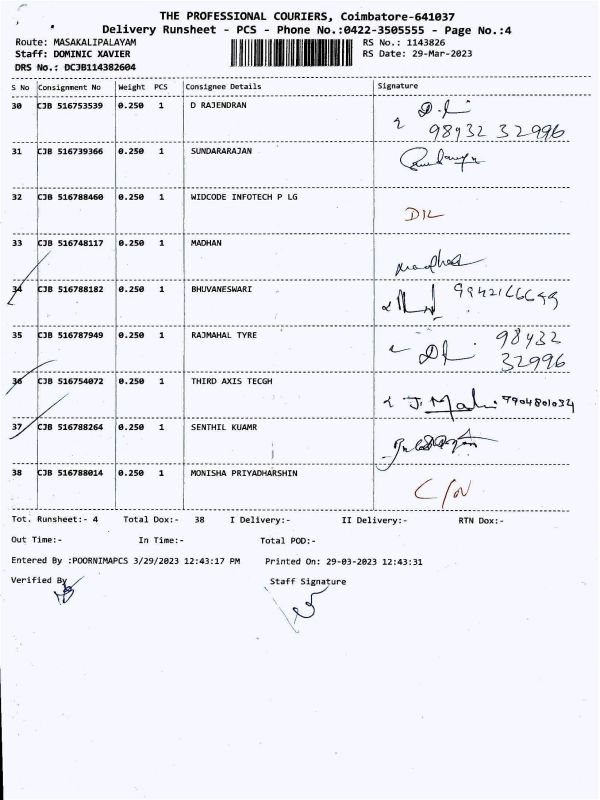 THE PROFESSIONAL COURIERS, Coimbatore-641037
Delivery Runsheet - PCS - Phone No.:0422-3505555 - Page No.:4
Route: MASAKALIPALAYAM RS No.: 1143826
Staff: DOMINIC XAVIER RS Date: 29-Mar-2023
DRS No.: DCJB114382604
S No Consignment No Weight PCS Consignee Details Signature
30 CJB 516753539 0.250 1 D RAJENDRAN
98432 32996
31 CJB 516739366 0.250 1 SUNDARARAJAN
32 CJB 516788460 0.250 1 WIDCODE INFOTECH P LG
D/L
33 CJB 516748117 0.250 1 MADHAN
madhan
34 CJB 516788182 0.250 1 BHUVANESWARI
35 CJB 516787949 0.250 1 RAJMAHAL TYRE 98432
32996
36 CJB 516754072 0.250 1 THIRD AXIS TECGH
7904801034
37 CJB 516788264 0.250 1 SENTHIL KUAMR
38 CJB 516788014 0.250 1 MONISHA PRIYADHARSHIN
C/N
Tot. Runsheet:- 4 Total Dox:- 38 I Delivery:- II Delivery:- RTN Dox:-
Out Time:- In Time:- Total POD:-
Entered By :POORNIMAPCS 3/29/2023 12:43:17 PM Printed On: 29-03-2023 12:43:31
Verified By Staff Signature